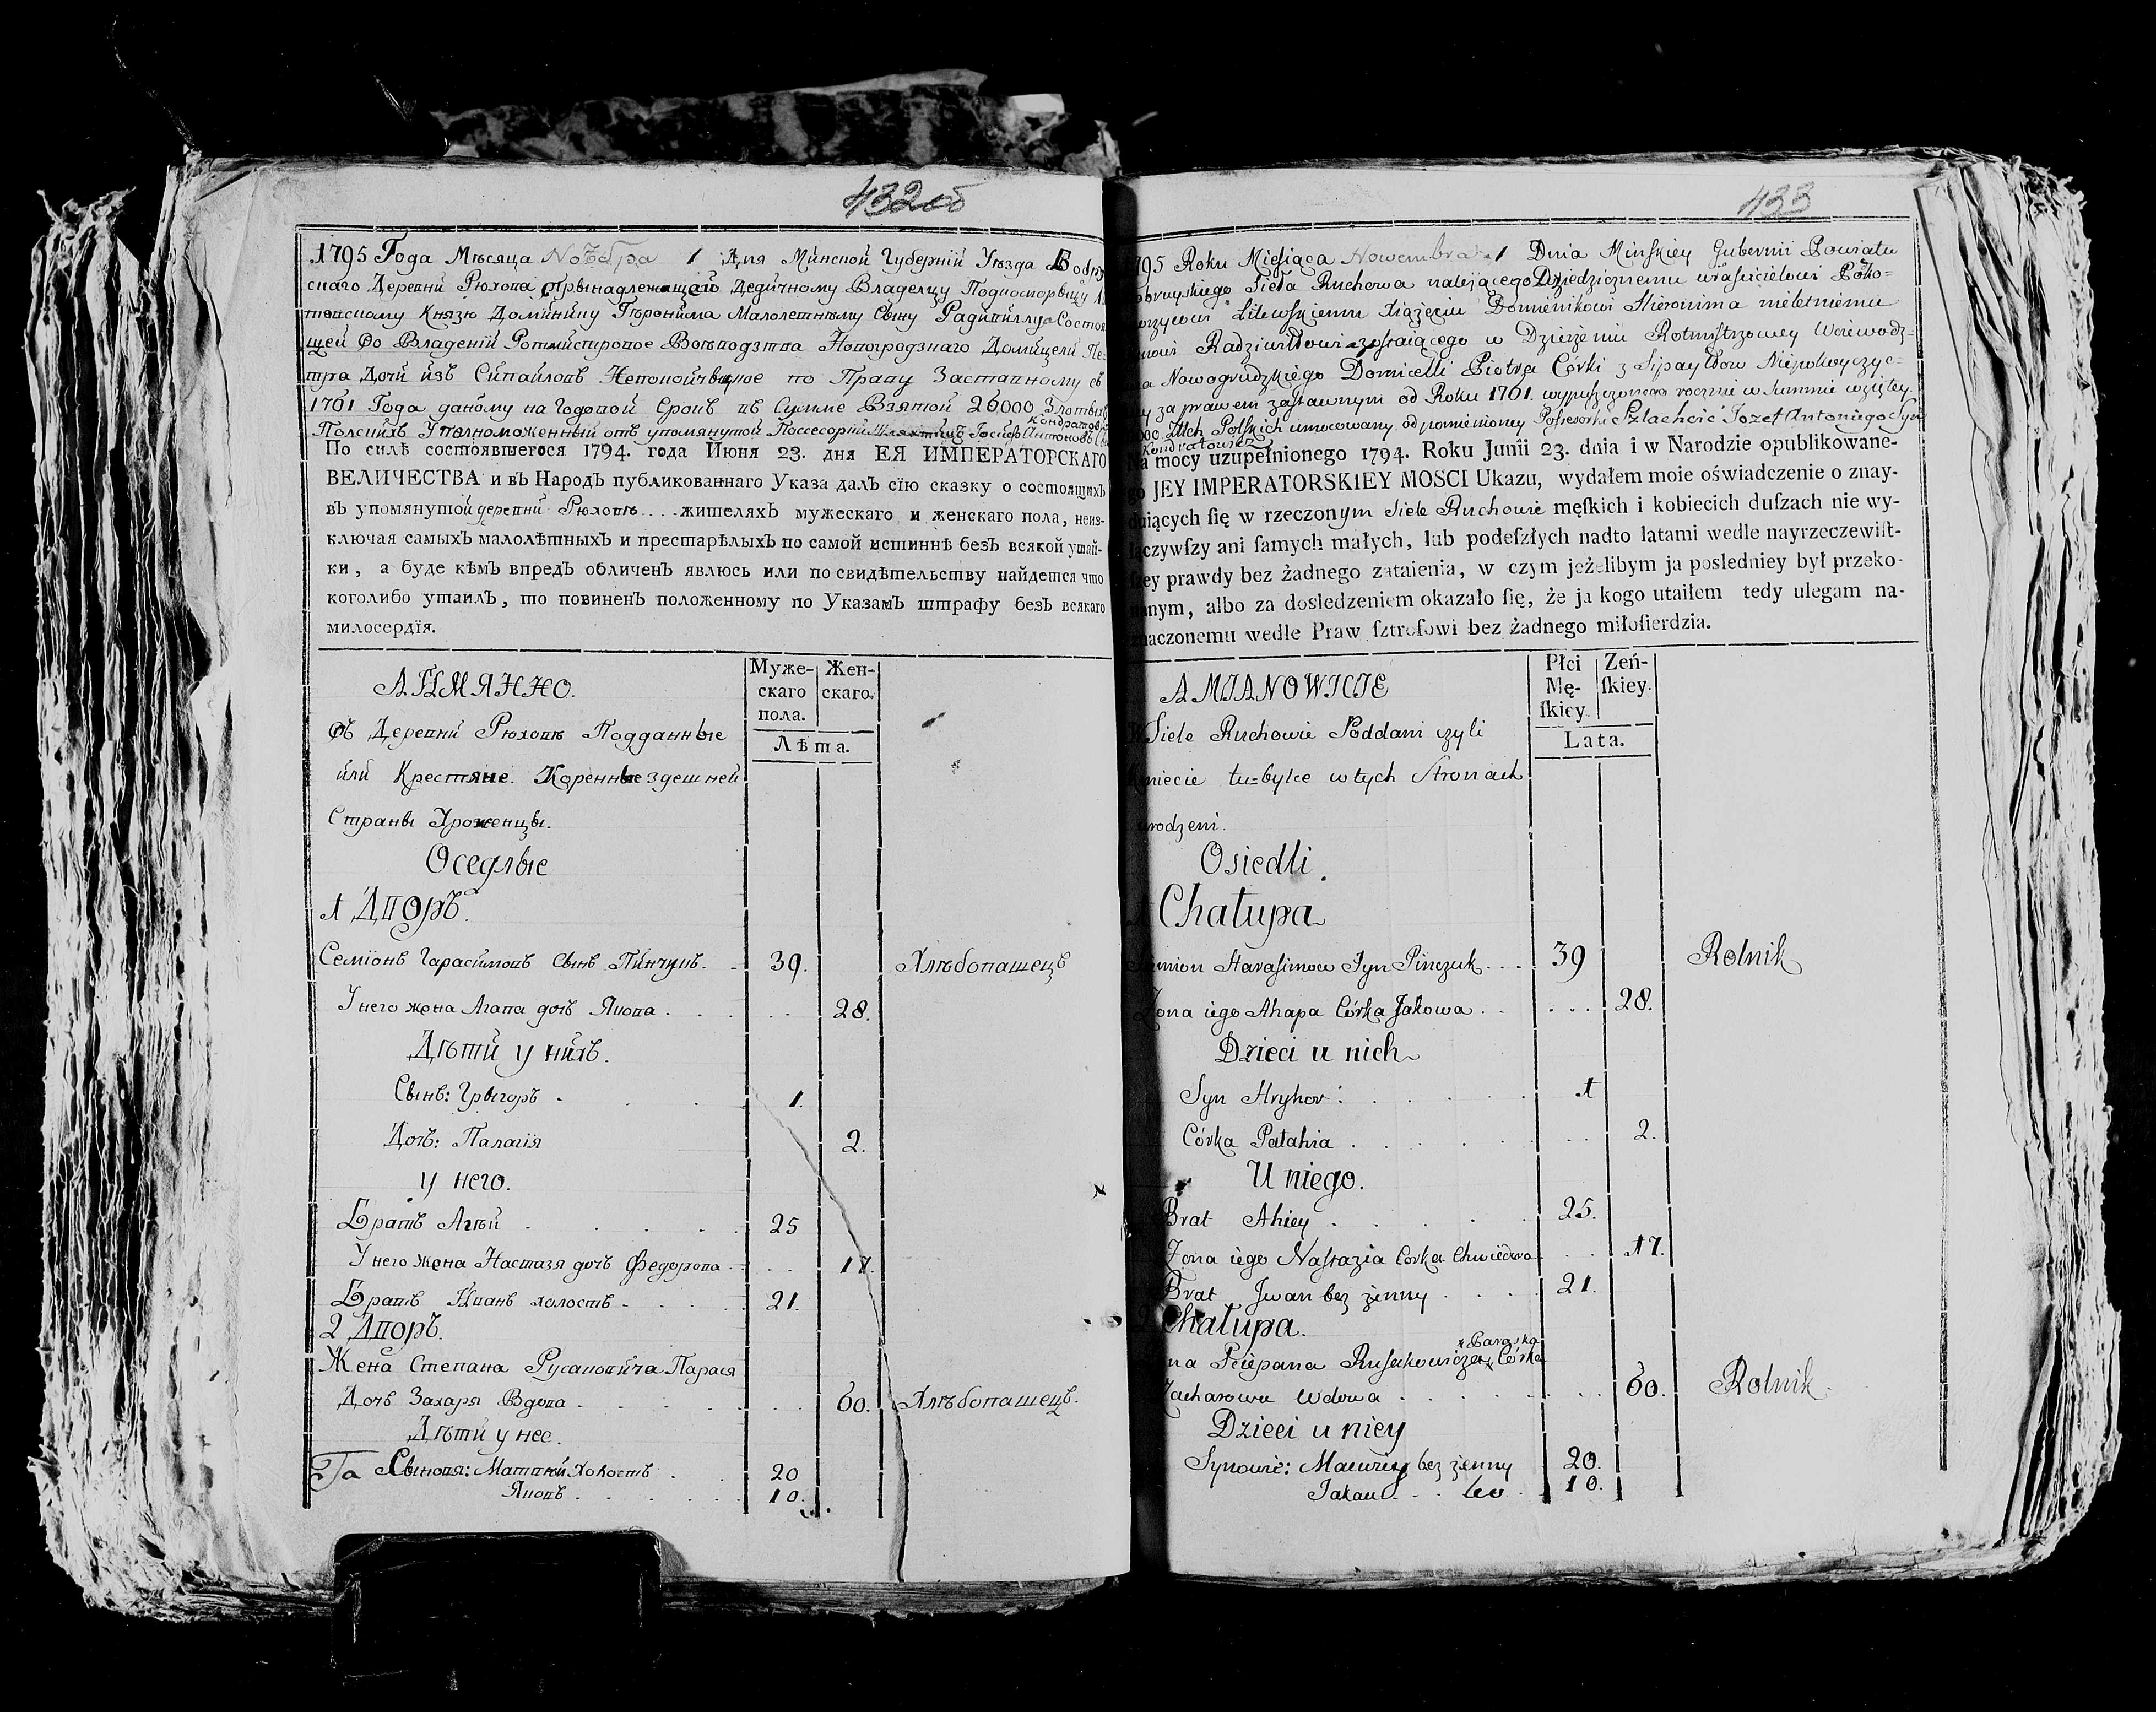 432об
1795 Года Мѣсяца Ноября 1 Дня Минской Губерніи Уѣзда Бобруй
скаго Деревни Рюхова прынадлежащаго Дедичному Владелцу Подкоморыцу Ли
товскому Князю Доминику Гѣронима Малолетнему Сыну Радивиллу а Состоя
щей во Владеніи Ротмистровое Воѣводзтва Новогродзкаго Домицели Пе-
тра Дочи изъ Сипайловъ Непокойчыцкое по Праву Заставному съ
1761 Года даному на Годовой Срокъ въ Сумме Взятой 26000 Злотыхъ
Кондратов
Полскихъ Уполноможенный отъ упомянутой Поссесорки Шляхтичъ Іосифъ Антоновъ
По силѣ состоявшегося 1794. года Июня 23. дня ЕЯ ИМПЕРАТОРСКАГО
ВЕЛИЧЕСТВА и въ Народъ публикованнаго Указа далъ сїю сказку о состоящихъ
въ упомянутой деревни Рюховъ.... жителяхъ мужескаго и женскаго пола, неиз-
ключая самыхъ малолѣтныхъ и престарѣлыхъ по самой истиннѣ безъ всякой утай-
ки, а буде кѣмъ впредъ обличенъ явлюсь или по свидѣтельству найдется что
коголибо утаилъ, то повиненъ положенному по Указамъ штрафу безъ всякаго
милосердїя.
АІМЯННО.
Муже-
скаго
пола.
Жен-
скаго.
Лѣта.
Въ Деревни Рюховѣ Подданные
или Крестяне. Коренные здешней
Страны Уроженцы.
Оседлые
1 Дворъ.
Семіонъ Гарасимовъ Сынъ Пинчукъ. 39. Хлѣбопашецъ
У него жена Агапа дочь Якова . . . 28.
Дѣти у нихъ.
Сынъ: Грыгоръ . 1.
Дочь: Палагія 2.
У него.
Братъ Агѣй . 25
У него жена Настазя дочь Федорова. 17.
Братъ Иванъ холостъ . 21.
2 Дворъ.
Жена Степана Русаковича Парася
Дочь Захаря Вдова . 60. Хлѣбопашецъ.
Дѣти у нее.
Сыновя: Матвѣй Холостъ . 20
Яковъ . 10.
433
95 Roku Miesiąca Nowembra 1 Dnia Minskiey Gubernii Powiatu
obruyskiego Sieła Ruchowa należącego Dziedzicznemu właścicielowi Podko=
orzycowi Litewskiemu Xiążęciu Dominikowi Hieronima nieletniemu
nowi Radziwiłłowi a zostaiącego w Dzierżeniu Rotmistrzowey Woiewodz=
a Nowogrudzkiego Domicelli Piotra Córki z Sipayłłow Niepokoyczyc=
y za prawem zastawnym od Roku 1761. wypuszczonego rocznie w Summie wziętey.
000 Złłch Polskich umocowany od pomienioney Possesorki Szlachcic Jozef Antoniego Syn
Kondratowicz
Na mocy uzupełnionego 1794. Roku Junii 23. dnia i w Narodzie opublikowane-
go JEY IMPERATORSKIEY MOSCI Ukazu, wydałem moie oświadczenie o znay-
duiących ſię w rzeczonym Siele Ruchowie męſkich i kobiecich duſzach nie wy-
łączywſzy ani ſamych małych, lub podeſzłych nadto latami wedle nayrzeczewiſt-
ſzey prawdy bez żadnego zataienia, w czym jeżelibym ja posledniey był przeko-
nanym, albo za dosledzeniem okazało ſię, że ja kogo utaiłem tedy ulegam na-
znaczonemu wedle Praw ſztrofowi bez żadnego miłoſierdzia.
A MIANOWICIE
Płci
Mę-
ſkiey.
Zeń-
ſkiey.
Lata.
W Siele Ruchowie Poddani czyli
Kmiecie tu=bylce w tych Stronach
urodzeni.
Osiedli.
1 Chałupa
Semion Harasimow Syn Pinczuk . . . 39 Rolnik
Zona iego Ahapa Córka Jakowa . . 28.
Dzieci u nich
Syn Hryhor: 1
Córka Pałahia . 2.
U niego.
Brat Ahiey . 25.
Zona iego Nastazia Corka Chwiedora . . 17.
Brat Jwan bez zenny . 21.
2 Chałupa.
x Paraska
na Sciepana Rusakowicza x Córka
Zacharowa Wdowa . 60. Rolnik.
Dzieci u niey
Synowie: Maciwiey bez zenny 20.
Jakau . . 10.